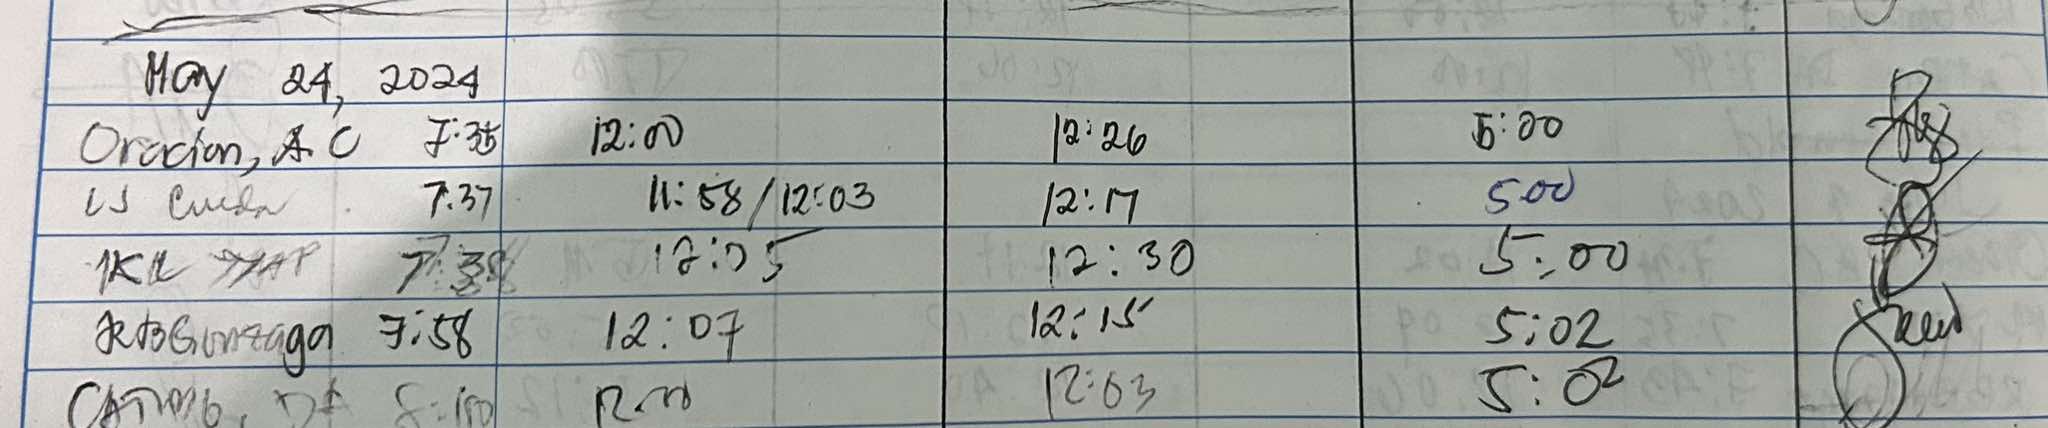 May 24, 2024
Oracion, A. C 7:35 12:00 12:26 5:00
LJ 7:37 11:58/12:03 12:17 500
KR YAP 7:38 12:05 12:30 5:00
Gonzaga 7:58 12:07 12:15 5:02
8:00 12:00 12:03 5:02